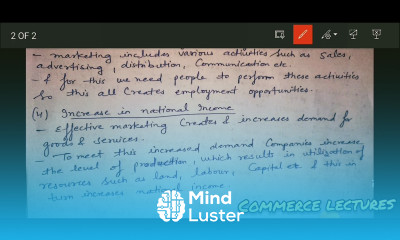 2 OF 2
- marketing includes various activities such as sales,
advertising, distribution, Communication etc.
- & for this we need people to perform these activities
So this all Creates employment opportunities.
(4) Increase in national Income
- Effective marketing Creates & increases demand for
goods & services.
- To meet this increased demand Companies increase
the level of production, which results in utilisation of
resources such as land, labour, Capital etc & this in
turn increases national income.
Mind
Luster
COMMERCE LECTURES